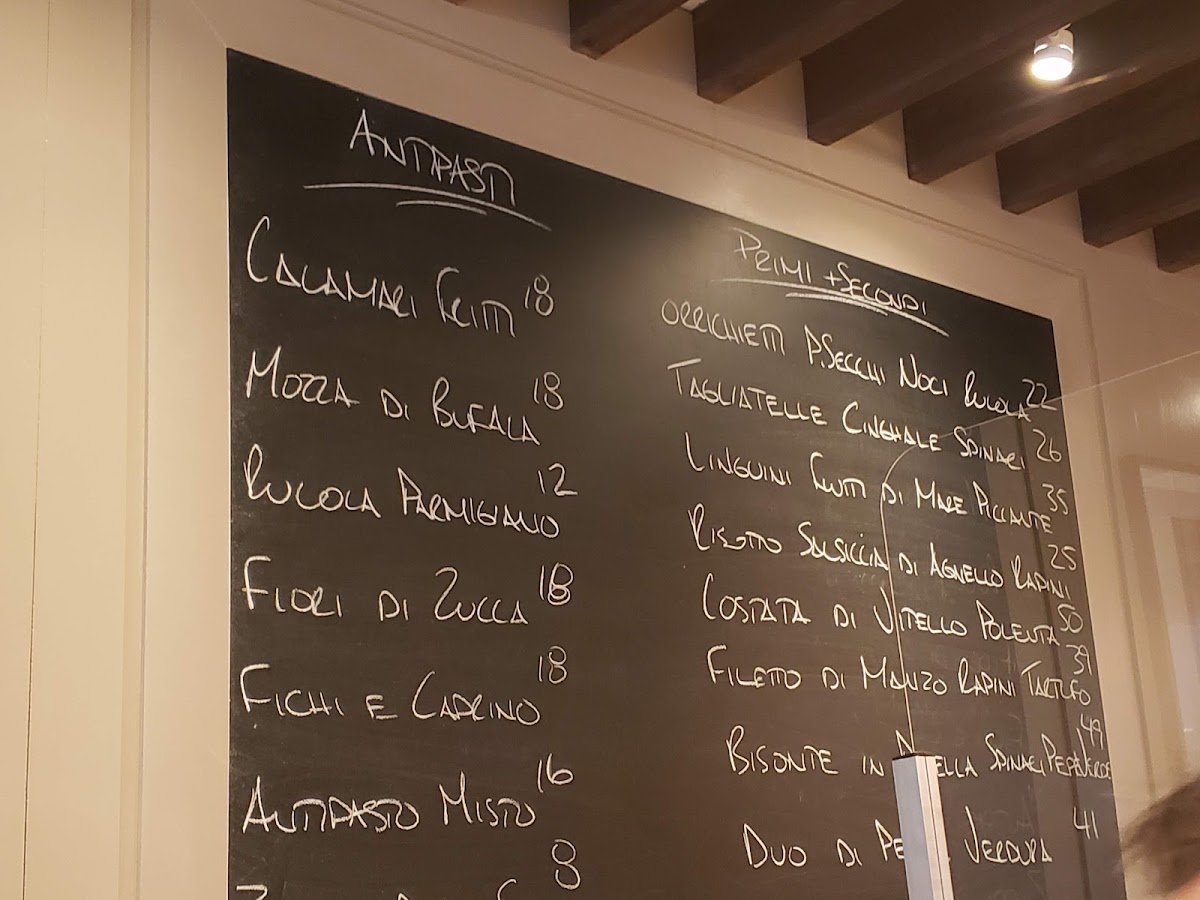 ANTIPASTI
CALAMARI FRITTI 18
MOZZA DI BUFALA 18
RUCOLA PARMIGIANO 12
FIORI DI ZUCCA 18
FICHI E CAPRINO 18
ANTIPASTO MISTO 16
8
PRIMI + SECONDI
ORRICHIETTI P.SECCHI NOCI RUCOLA 22
TAGLIATELLE CINGHALE SPINACI 26
LINGUINI FRUTTI DI MARE PICCANTE 35
RISOTTO SALSICCIA DI AGNELLO RAPINI 25
COSTATA DI VITELLO POLENTA 50
FILETTO DI MANZO RAPINI TARTUFO 39
BISONTE IN SPINACI PEPE VERDE 49
DUO DI VERDURA 41